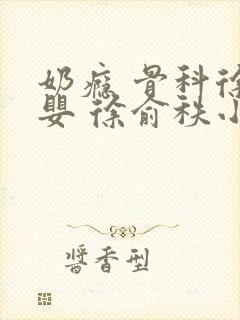 奶瘾 骨科徐
婴 徐俞秩小
醬香型